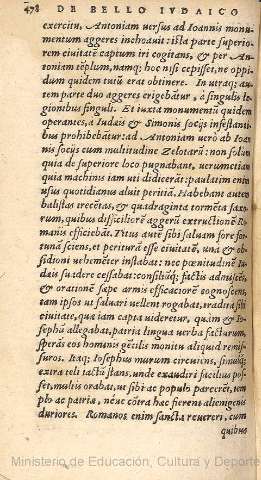 478 DE BELLO IVDAICO
exercitu, Antoniam versus ad Ioannis monu-
mentum aggeres inchoauit: ista parte superio-
rem ciuitatē captum iri cogitans, & per An-
toniam tēplum, namq; hoc nisi cepisset, ne oppi-
dum quidem tutū erat obtinere. In vtraq; au-
tem parte duo aggeres erigebātur, à singulis le-
gionibus singuli. Et iuxta monumentū quidem
operantes, à Iudæis & Simonis socijs infestanti-
bus prohibebātur: ad Antoniam verò ab Ioan-
nis socijs cum multitudine Zelotarū: non solùm
quia de superiore loco pugnabant, verumetiam
quia machinis iam vti didicerāt: paulatim enim
vsus quotidianus aluit peritiā. Habebant autem
balistas trecētas, & quadraginta tormēta saxo-
rum, quibus difficiliorē aggerū extructionē Ro-
manis efficiebāt. Titus autē sibi saluam fore for-
tunā sciens, et perituram esse ciuitatē, vna & ob-
sidioni vehemēter instabat: nec pœnitudinē Iu-
dæis suadere cessabat: consiliūq; factis admiscēs,
& orationē sæpe armis efficaciorē cognoscens,
tam ipsos vt saluari vellent rogabat, tradita sibi
ciuitate, quæ iam capta videretur, quàm & Io-
sephū allegabat, patria lingua verba facturum,
sperās eos hominis gētilis monitu aliquid remis-
suros. Itaq; Iosephus murum circuiens, simulq;
extra teli iactū stans, vnde exaudiri facilius pos-
set, multis orabat, vt sibi ac populo parcerēt, tem
plo ac patriæ, néue cōtra hæc fierent alienigenis
duriores. Romanos enim sancta reuereri, cum
quibus
Ministerio de Educación, Cultura y Deporte